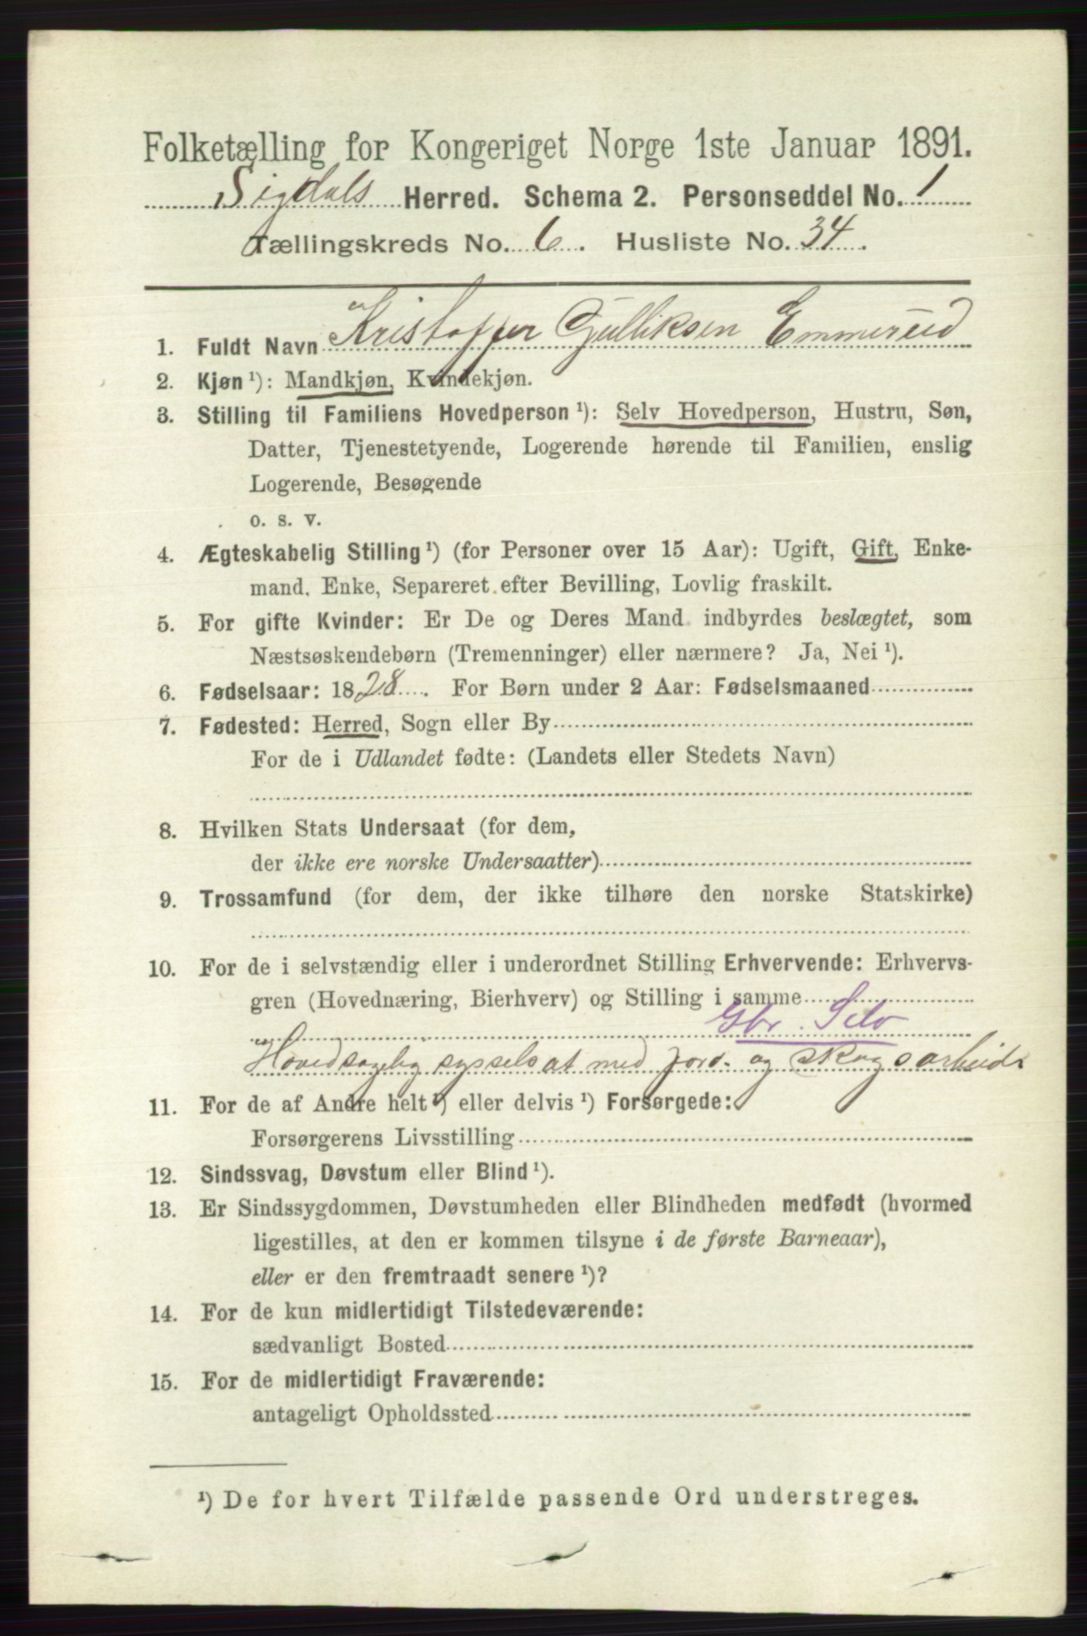 Folketælling for Kongeriget Norge 1ste Januar 1891.
Sigdals Herred. Schema 2. Personseddel No. 1
Tællingskreds No. 6. Husliste No. 34.
1. Fuldt Navn Kristoffer Gulliksen Emmerud
2. Kjøn ¹): Mandkjøn, Kvindekjøn.
3. Stilling til Familiens Hovedperson ¹): Selv Hovedperson, Hustru, Søn,
Datter, Tjenestetyende, Logerende hørende til Familien, enslig
Logerende, Besøgende
o. s. v.
4. Ægteskabelig Stilling ¹) (for Personer over 15 Aar): Ugift, Gift, Enke-
mand, Enke, Separeret efter Bevilling, Lovlig fraskilt.
5. For gifte Kvinder: Er De og Deres Mand indbyrdes beslægtet, som
Næstsøskendebørn (Tremenninger) eller nærmere? Ja, Nei ¹).
6. Fødselsaar: 1828. For Børn under 2 Aar: Fødselsmaaned
7. Fødested: Herred, Sogn eller By
For de i Udlandet fødte: (Landets eller Stedets Navn)
8. Hvilken Stats Undersaat (for dem,
der ikke ere norske Undersaatter)
9. Trossamfund (for dem, der ikke tilhøre den norske Statskirke)
10. For de i selvstændig eller i underordnet Stilling Erhvervende: Erhvervs-
gren (Hovednæring, Bierhverv) og Stilling i samme
Gbr. Selv
Hovedsagelig sysselsat med jord- og skogsarbeide
11. For de af Andre helt ¹) eller delvis ¹) Forsørgede:
Forsørgerens Livsstilling
12. Sindssvag, Døvstum eller Blind ¹).
13. Er Sindssygdommen, Døvstumheden eller Blindheden medfødt (hvormed
ligestilles, at den er kommen tilsyne i de første Barneaar),
eller er den fremtraadt senere ¹)?
14. For de kun midlertidigt Tilstedeværende:
sædvanligt Bosted
15. For de midlertidigt Fraværende:
antageligt Opholdssted
¹) De for hvert Tilfælde passende Ord understreges.